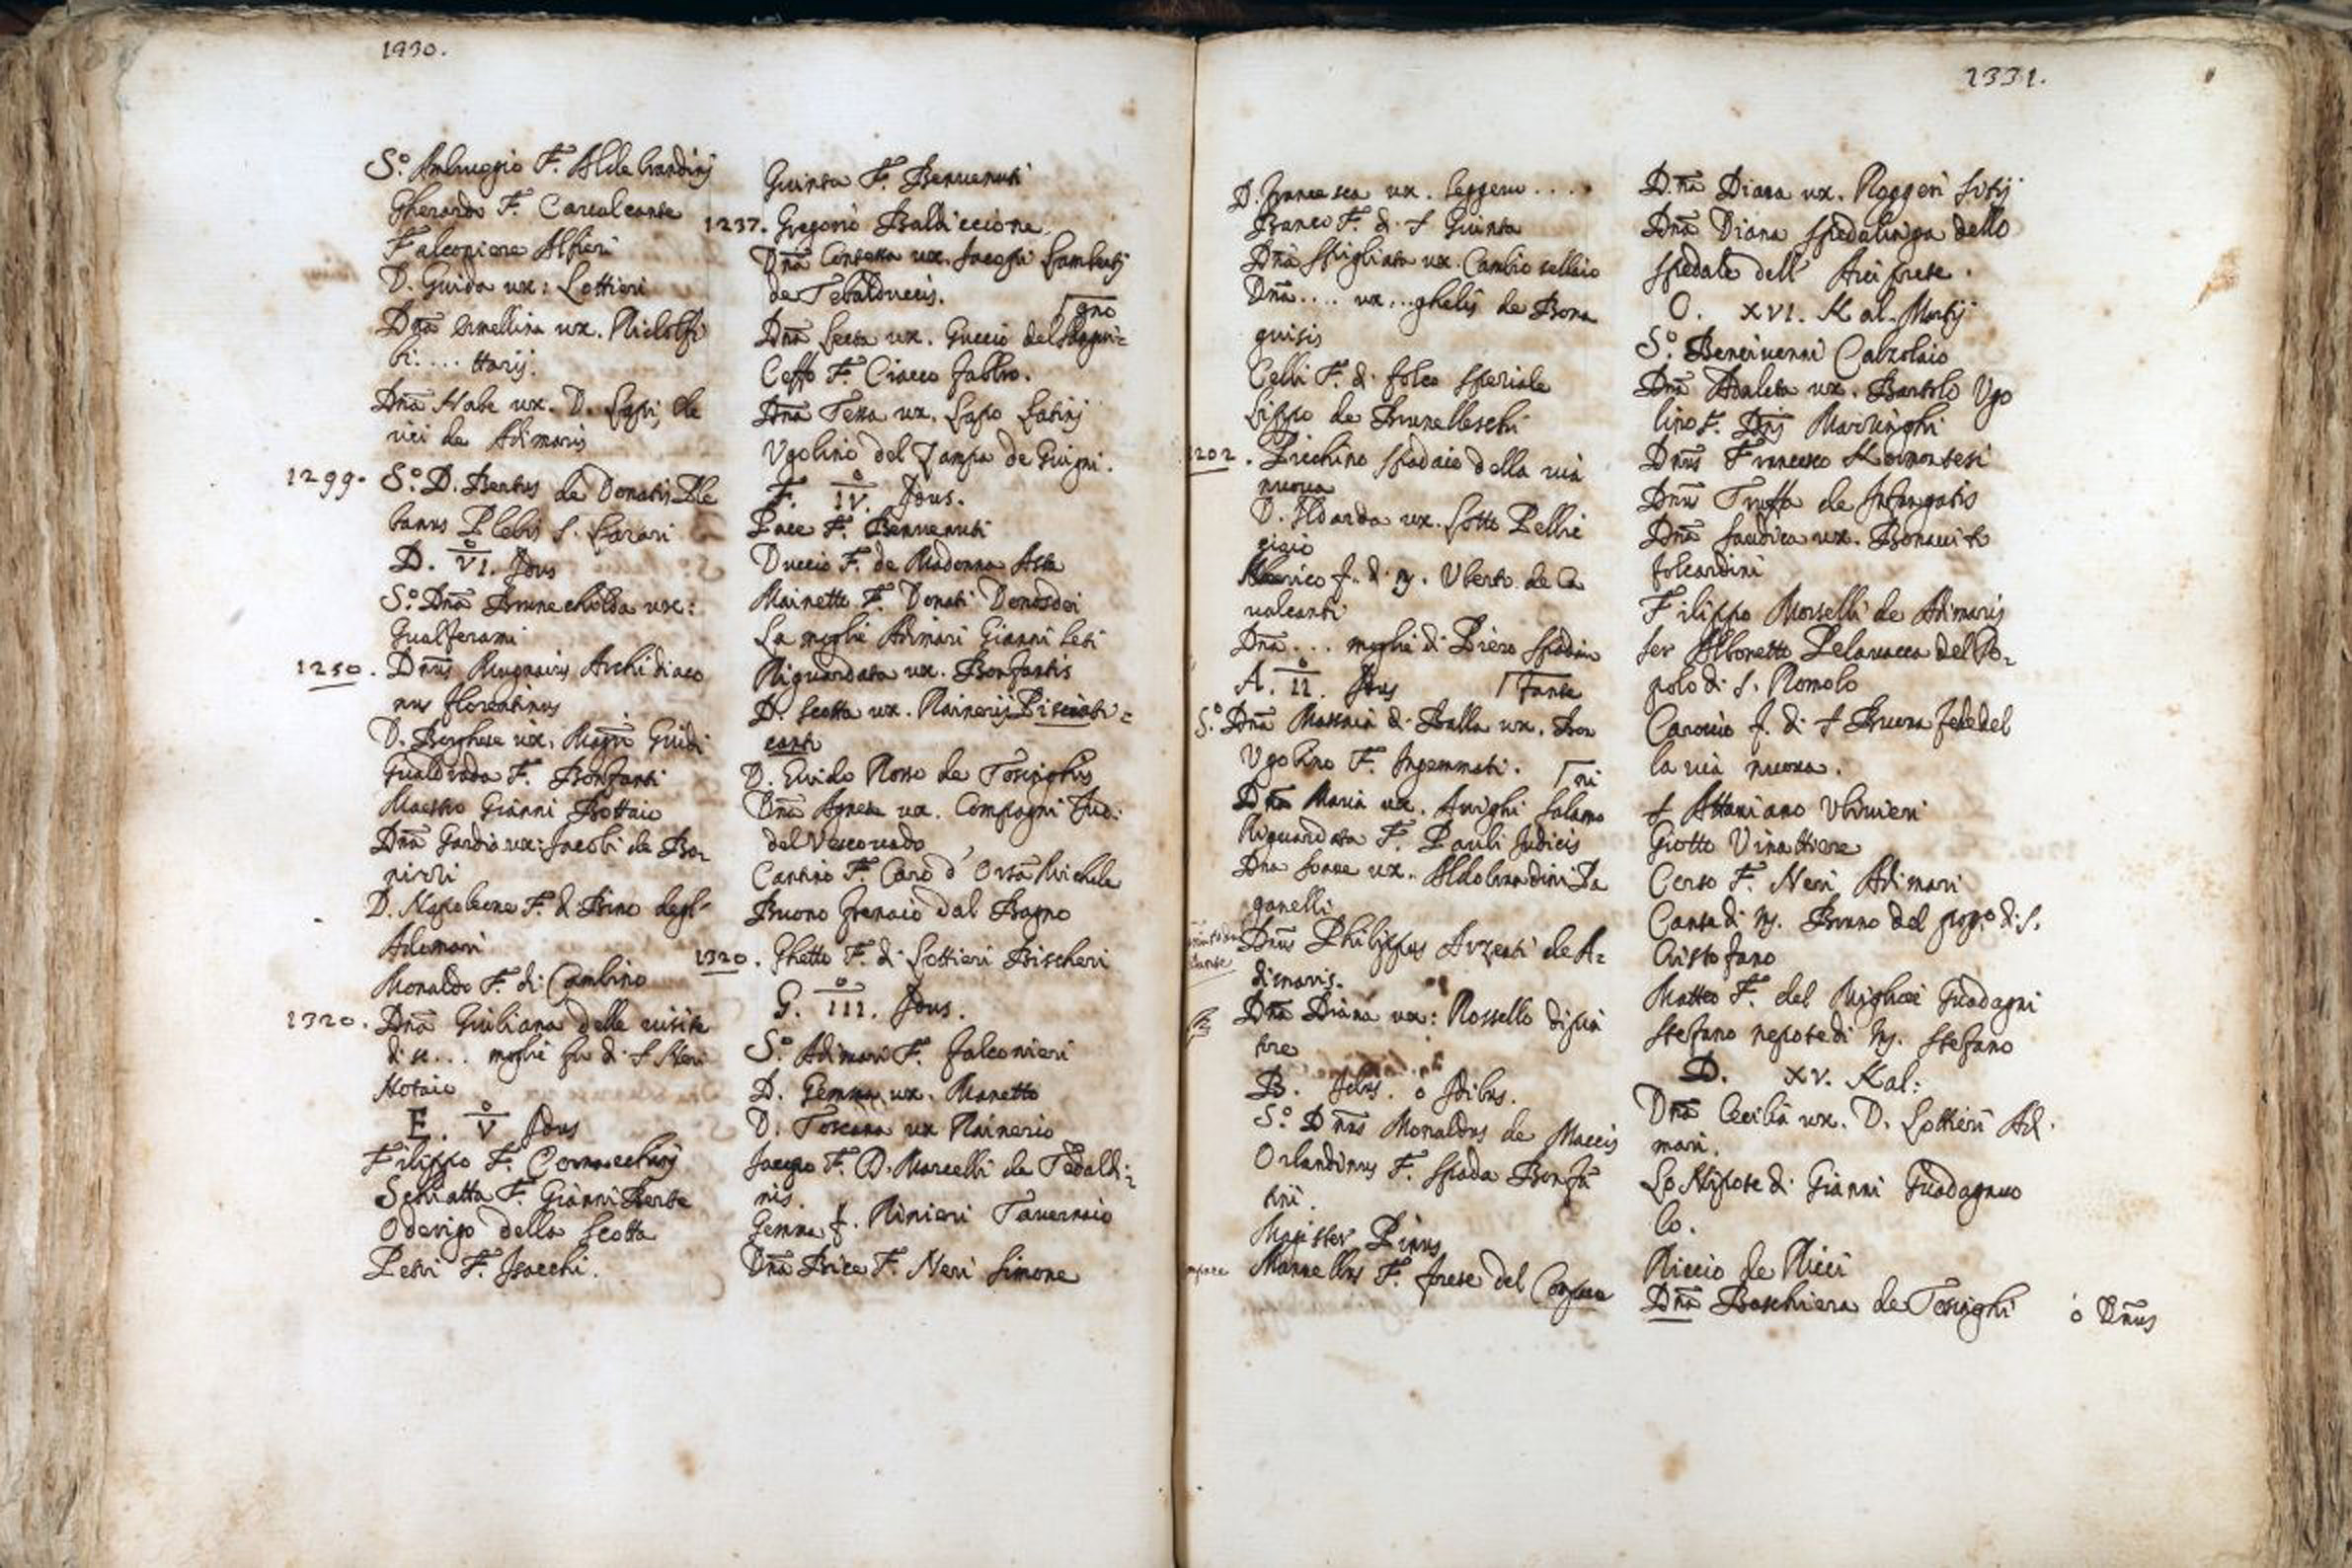 1930.
S.º Ambruogio F. Aldebrandinj
Gherardo F. Caualcante
Falconiere Alfieri
D. Guida ux: Lottieri
Dña Ermellina ux. Ridolfi
bi.... ttarij.
Dña Nabe ux. D. Lapi, de
uici de Adimaris
1299. S.º D. Bentus de Donatis Ple
banus Plebis S. Lazari
D. VI. Idus
S.º Dña Brunechilda ux:
Gualferami
1250. Dñus Rugnairus Archidiaco
nus florentinus
D. Borghese ux. Magri Guidi
Gualdrada F. Bonfanti
Maestro Gianni Bottaio
Dña Gardia ux: Jacobi de Bo=
nizzi
D. Napoleone F. di Bino degl'
Adimari
Monaldo F. di Cambino
1320. Dña Giuliana delle uisite
di se... moglie fu di S Neri
Notaio
E. V Idus
Filippo F. Cornacchinj
Schiatta F. Gianni Berte
Oderigo della Scotta
Petri F. Isacchi.
Guinta F. Benuenuti
1237. Gregorio Baldiccione
Dña Contessa ux. Jacopi Lambertj
de Tebalduccis.
gno
Dña Lecca ux. Guccio del
Ceffo F. Ciacco fabbro.
Dña Tessa ux. Lapo Latinj
Vgolino del Zampa de Guigni.
F. IV. Idus.
Pace F. Benuenuti
Duccio F. de Madonna Asta
Mainetto F. Donati Donosdei
La moglie Adimari Gianni Leti
Riguardata ux. Bonfantis
D. Scotta ux. Rainerij Pisciabi=
conti
D. Guido Rosso de Tosinghis
Dña Agnesa ux. Compagni Jud:
del Vescouado
Cantino F. Caro d' Orta Michele
Buono frenaio dal Bagno
1320. Ghetto F. di Lottieri Bischeri
G. III. Idus.
S.º Adimari F. falconieri
D. Gemma ux. Manetto
D. Toscana ux Rainerio
Jacopo F. D. Marcelli de Tedaldi=
nis.
Gemma f. Rinieri Tauernaio
Dña Bice F. Neri Simone
1331.
D. francesca ux. leggeru....
Banco F. di S Guinta
Dña Spigliata ux. Cambio sellaio
Dña.... ux...ghelis de Bona
guisis
Celli F. di folco speziale
Lippo de Brunelleschi
1202. Picchino spadaio della uia
nuoua
D. Aldarda ux. Lotto Pellic
ciaio
Alberico f. di M. Vberto de Ca
ualcanti
Dña... moglie di Piero spadaio
A. II. Idus
fante
S.º Dña Massaia di Balla ux. Bon
Vgolino F. Ingemmati.
ni
Dña Maria ux. Arrighi Salamo
Riguardata F. Pauli Judicis
Dna Soaue ux. Aldobrandini Pa
ganelli
Dñus Philippus Arzenti de A=
dimaris.
Dña Diana ux: Rossello dipin
tore
B. Idus. o Idibus.
S.º Dñus Monaldus de Maccis
Orlandinus F. Spada Bonfan
tini.
Magister Pinus
Mannellus F. frese del
Dña Diana ux. Ruggeri
Dña Diana spedalinga dello
spedale dell' Arciprete.
C. XVI. Kal. Martij
S.º Benciuenni Calzolaio
Dña Adaleta ux. Bartolo Vgo
lino F. Dnj Martinghi
Dñus Francesco Kiermontesi
Dñus Truffa de Infangatis
Dña Laudica ux. Bonauito
folcardini
Filippo Morselli de Adimaris
Ser Albonetto Pelauacca del Po=
polo di S. Romolo
Caroccio f. di S Bruna fededel
la uia nuoua.
S Attauiano Vbinieri
Giotto Vinattiere
Corso F. Neri Adimari
Cante di M. Bruno del pop.º di S.
Cristofano
Matteo F. del Migliore Guadagni
Stefano nepote di M. Stefano
D. XV. Kal:
Dña Cecilia ux. D. Lottieri Adi
mari.
Lo Nipote di Gianni Guadagnuo
lo.
Riccio de Ricci
Dña Boschiera de Tosinghi ò Dñus